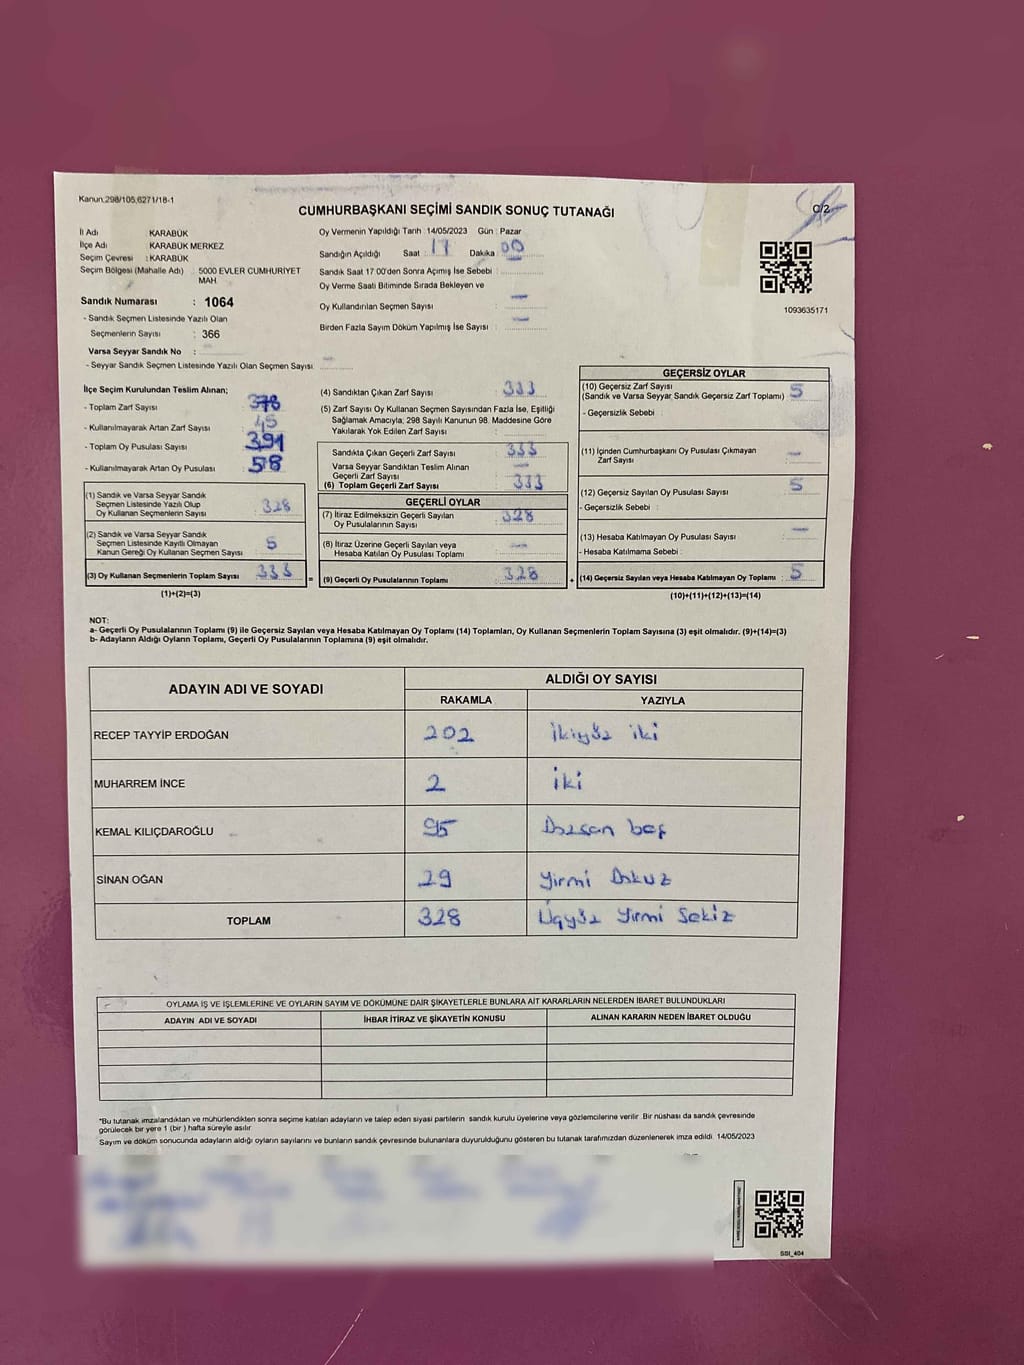 Kanun.298/105,6271/18-1
CUMHURBAŞKANI SEÇİMİ SANDIK SONUÇ TUTANAĞI
C/2
İl Adı : KARABÜK
İlçe Adı : KARABÜK MERKEZ
Seçim Çevresi : KARABÜK
Seçim Bölgesi (Mahalle Adı) : 5000 EVLER CUMHURİYET
MAH
Sandık Numarası : 1064
- Sandık Seçmen Listesinde Yazılı Olan
Seçmenlerin Sayısı : 366
Varsa Seyyar Sandık No :
- Seyyar Sandık Seçmen Listesinde Yazılı Olan Seçmen Sayısı :
Oy Vermenin Yapıldığı Tarih : 14/05/2023 Gün : Pazar
Sandığın Açıldığı Saat : 17 Dakika : 00
Sandık Saat 17:00'den Sonra Açımış İse Sebebi :
Oy Verme Saati Bitiminde Sırada Bekleyen ve
Oy Kullandırılan Seçmen Sayısı : —
Birden Fazla Sayım Döküm Yapılmış İse Sayısı : —
1093635171
İlçe Seçim Kurulundan Teslim Alınan;
- Toplam Zarf Sayısı : 378
- Kullanılmayarak Artan Zarf Sayısı : 45
- Toplam Oy Pusulası Sayısı : 391
- Kullanılmayarak Artan Oy Pusulası : 58
(1) Sandık ve Varsa Seyyar Sandık
Seçmen Listesinde Yazılı Olup
Oy Kullanan Seçmenlerin Sayısı : 328
(2) Sandık ve Varsa Seyyar Sandık
Seçmen Listesinde Kayıtlı Olmayan
Kanun Gereği Oy Kullanan Seçmen Sayısı : 5
(3) Oy Kullanan Seçmenlerin Toplam Sayısı : 333
(1)+(2)=(3)
(4) Sandıktan Çıkan Zarf Sayısı : 333
(5) Zarf Sayısı Oy Kullanan Seçmen Sayısından Fazla İse, Eşitliği
Sağlamak Amacıyla; 298 Sayılı Kanunun 98. Maddesine Göre
Yakılarak Yok Edilen Zarf Sayısı :
Sandıkta Çıkan Geçerli Zarf Sayısı : 333
Varsa Seyyar Sandıktan Teslim Alınan
Geçerli Zarf Sayısı : —
(6) Toplam Geçerli Zarf Sayısı : 333
GEÇERLİ OYLAR
(7) İtiraz Edilmeksizin Geçerli Sayılan
Oy Pusulalarının Sayısı : 328
(8) İtiraz Üzerine Geçerli Sayılan veya
Hesaba Katılan Oy Pusulası Toplamı : —
(9) Geçerli Oy Pusulalarının Toplamı : 328
GEÇERSİZ OYLAR
(10) Geçersiz Zarf Sayısı
(Sandık ve Varsa Seyyar Sandık Geçersiz Zarf Toplamı) : 5
- Geçersizlik Sebebi :
(11) İçinden Cumhurbaşkanı Oy Pusulası Çıkmayan
Zarf Sayısı : —
(12) Geçersiz Sayılan Oy Pusulası Sayısı : 5
- Geçersizlik Sebebi :
(13) Hesaba Katılmayan Oy Pusulası Sayısı : —
- Hesaba Katılmama Sebebi :
(14) Geçersiz Sayılan veya Hesaba Katılmayan Oy Toplamı : 5
(10)+(11)+(12)+(13)=(14)
NOT:
a- Geçerli Oy Pusulalarının Toplamı (9) ile Geçersiz Sayılan veya Hesaba Katılmayan Oy Toplamı (14) Toplamları, Oy Kullanan Seçmenlerin Toplam Sayısına (3) eşit olmalıdır. (9)+(14)=(3)
b- Adayların Aldığı Oyların Toplamı, Geçerli Oy Pusulalarının Toplamına (9) eşit olmalıdır.
ADAYIN ADI VE SOYADI
ALDIĞI OY SAYISI
RAKAMLA YAZIYLA
RECEP TAYYİP ERDOĞAN 202 ikiyüz iki
MUHARREM İNCE 2 iki
KEMAL KILIÇDAROĞLU 95 Doksan beş
SİNAN OĞAN 29 Yirmi Dokuz
TOPLAM 328 Üçyüz Yirmi Sekiz
OYLAMA İŞ VE İŞLEMLERİNE VE OYLARIN SAYIM VE DÖKÜMÜNE DAİR ŞİKAYETLERLE BUNLARA AİT KARARLARIN NELERDEN İBARET BULUNDUKLARI
ADAYIN ADI VE SOYADI İHBAR İTİRAZ VE ŞİKAYETİN KONUSU ALINAN KARARIN NEDEN İBARET OLDUĞU
*Bu tutanak imzalandıktan ve mühürlendikten sonra seçime katılan adayların ve talep eden siyasi partilerin sandık kurulu üyelerine veya gözlemcilerine verilir. Bir nüshası da sandık çevresinde
görülecek bir yere 1 (bir) hafta süreyle asılır.
Sayım ve döküm sonucunda adayların aldığı oyların sayılarını ve bunların sandık çevresinde bulunanlara duyurulduğunu gösteren bu tutanak tarafımızdan düzenlenerek imza edildi. 14/05/2023
SSI_404